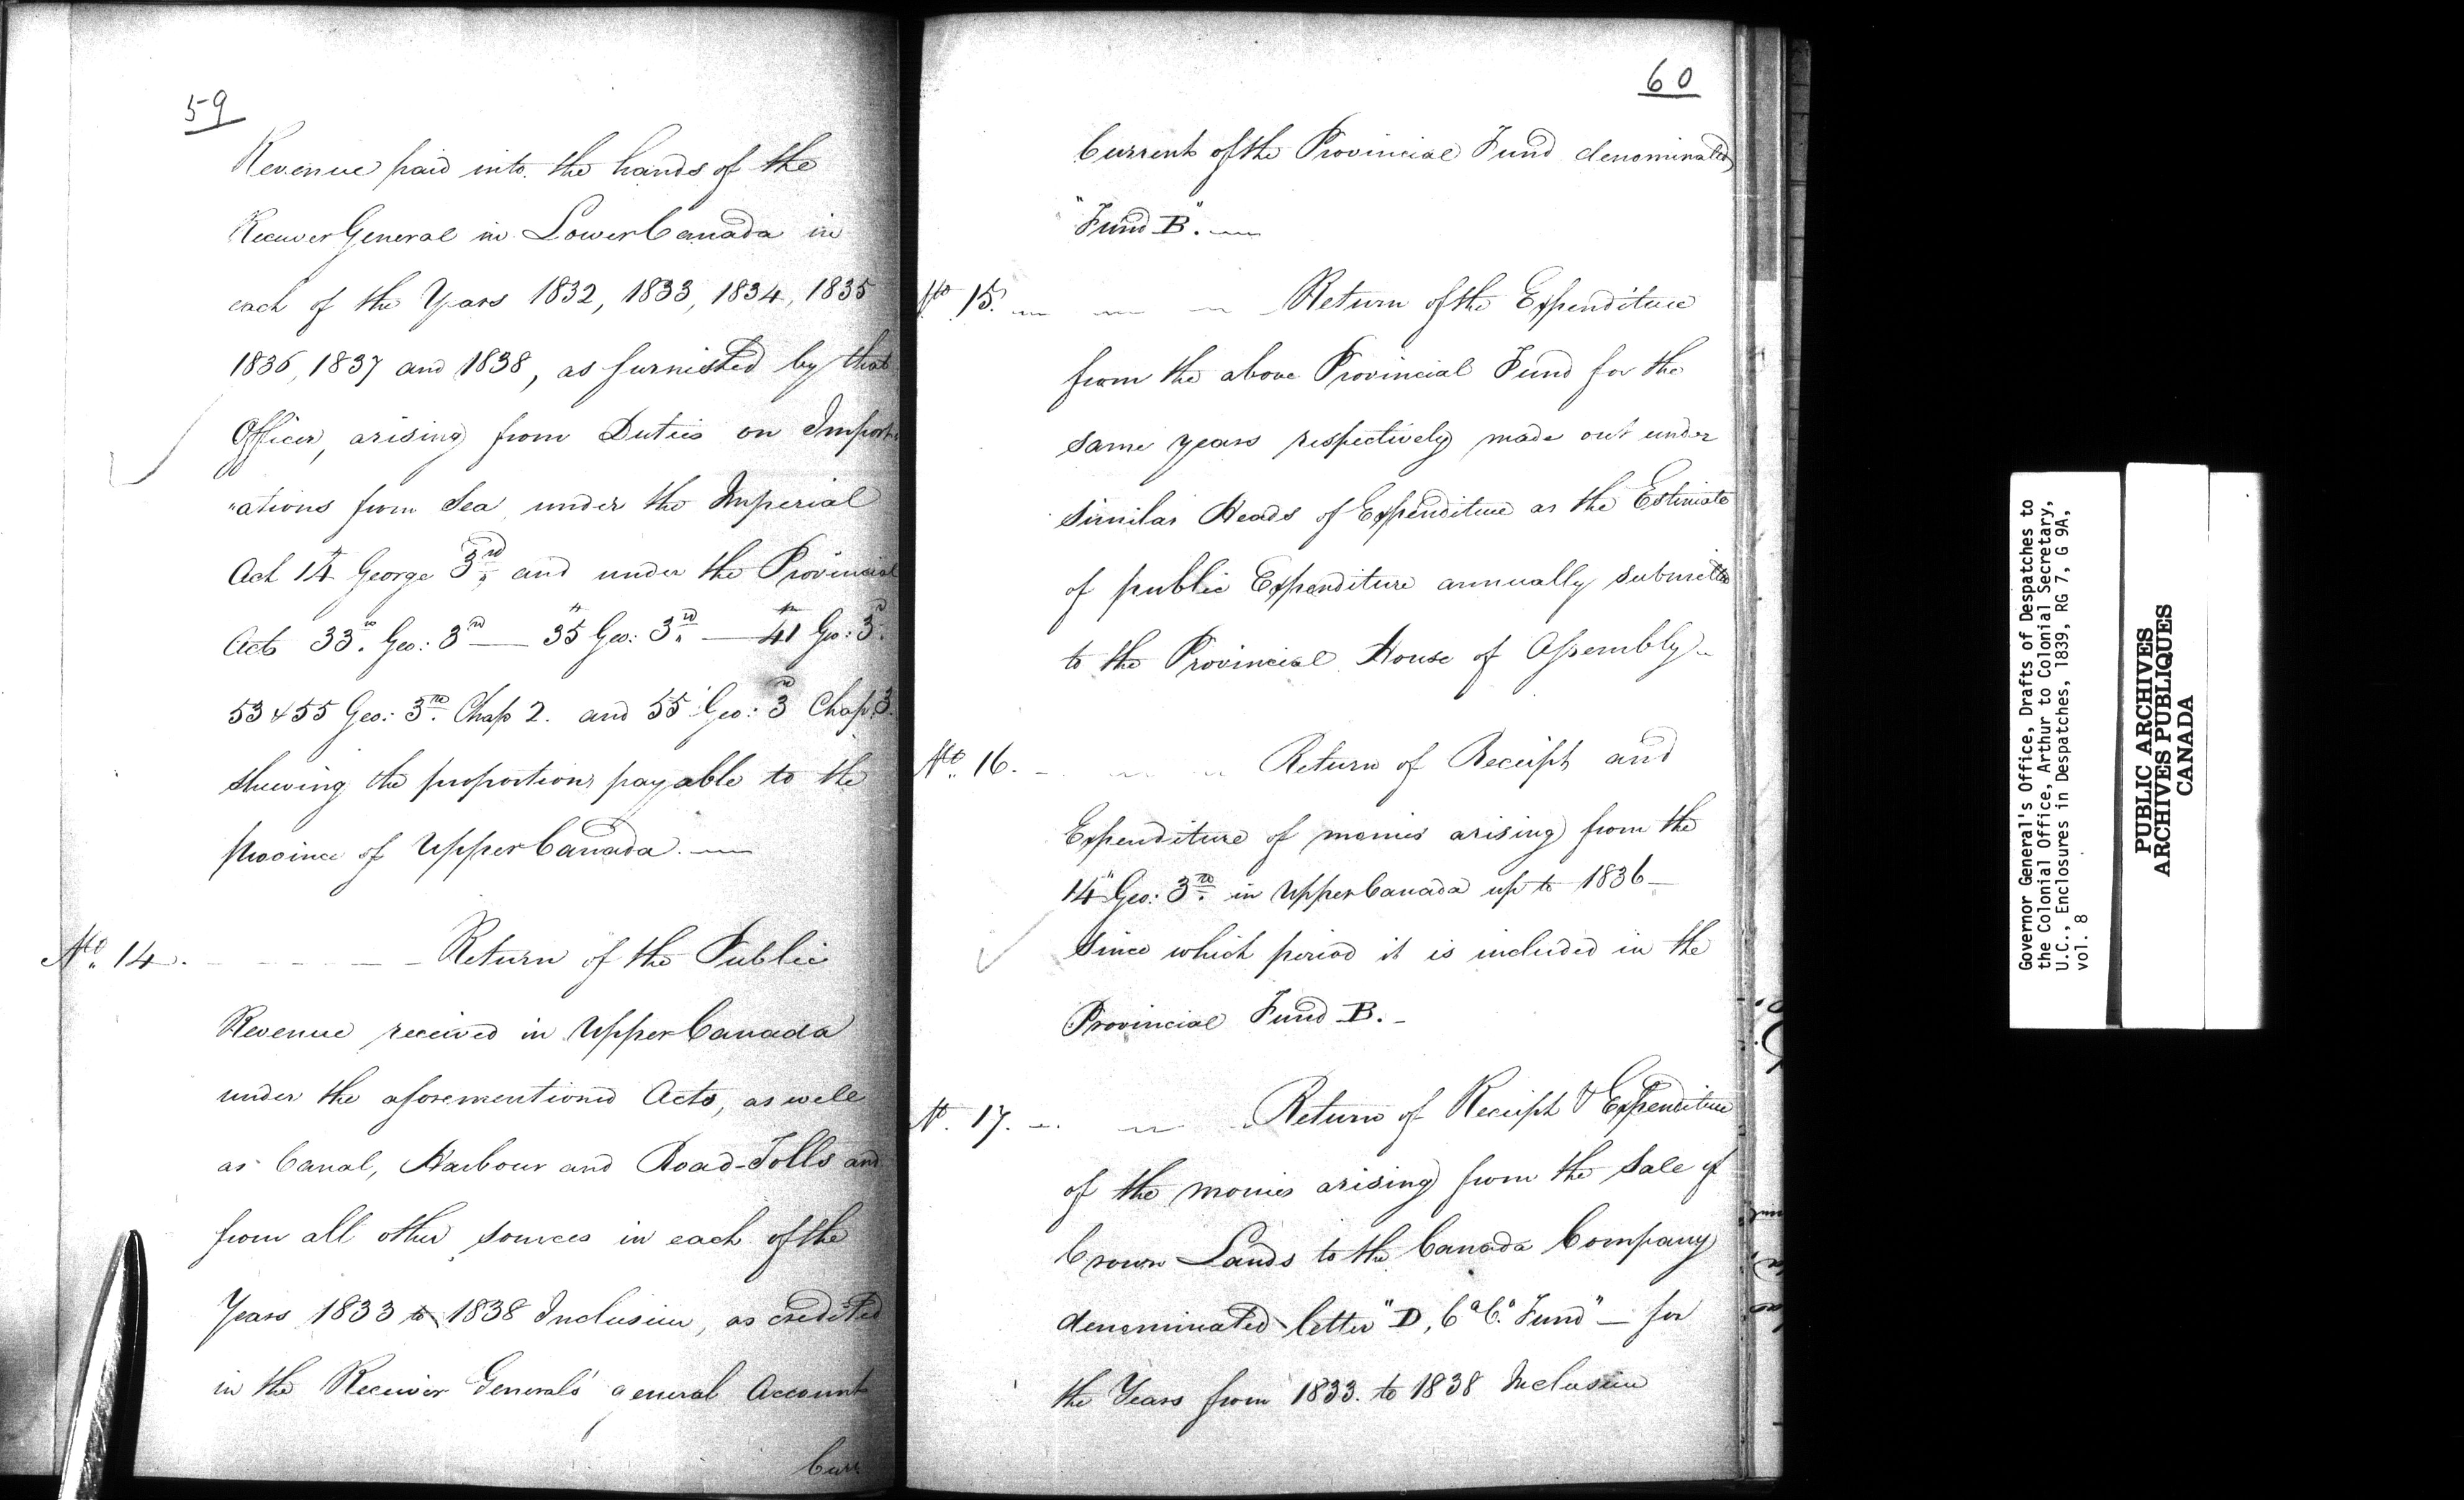 59
Revenue paid into the hands of the
Receiver General in Lower Canada in
each of the Years 1832, 1833, 1834, 1835
1836, 1837 and 1838, as furnished by that
Officer, arising from Duties on Import-
"ations from Sea, under the Imperial
Act 14 George 3rd, and under the Provincial
Acts 33rd Geo: 3rd — 35th Geo: 3rd — 41st Geo: 3rd
53 & 55 Geo: 3rd Chap 2. and 55 Geo: 3rd Chap. 3.
shewing the proportions payable to the
province of Upper Canada. —
No. 14. - - - - - Return of the Public
Revenue received in Upper Canada
under the aforementioned Acts, as well
as Canal, Harbour and Road-Tolls and
from all other sources in each of the
Years 1833 to 1838 Inclusive, as credited
in the Receiver Generals' general Account
Curr
60
Current of the Provincial Fund denominated
"Fund B". —
No 15. — — — Return of the Expenditure
from the above Provincial Fund for the
same years respectively made out under
similar Heads of Expenditure as the Estimate
of public Expenditure annually submitted
to the Provincial House of Assembly —
No. 16. - - - Return of Receipt and
Expenditure of monies arising from the
14" Geo: 3rd in Upper Canada up to 1836 —
since which period it is included in the
Provincial Fund B. -
No. 17. - - - Return of Receipt & Expenditure
of the monies arising from the Sale of
Crown Lands to the Canada Company
denominated letter "D, Ca Co. Fund" — for
the Years from 1833. to 1838 Inclusive
Governor General's Office, Drafts of Despatches to
the Colonial Office, Arthur to Colonial Secretary,
U.C., Enclosures in Despatches, 1839, RG 7, G 9A,
vol. 8
PUBLIC ARCHIVES
ARCHIVES PUBLIQUES
CANADA